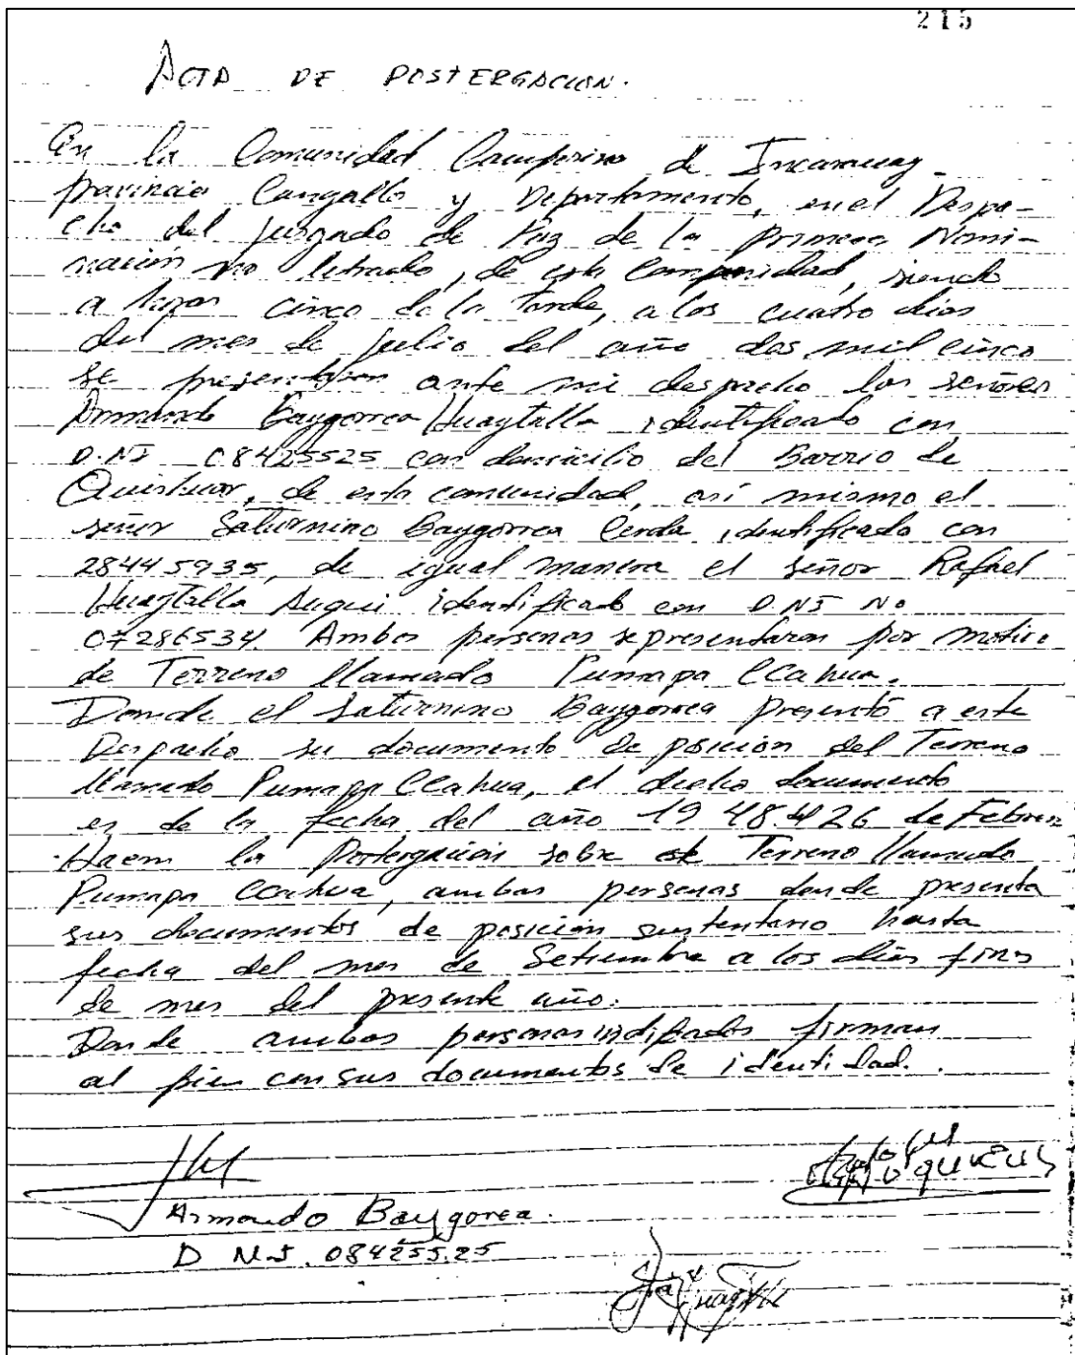 215
ACTA DE POSTERGACION.
En la Comunidad Campesina de Incaraccay
provincia Cangallo y Departamento, en el Despa-
cho del juzgado de Paz de la primera Nomi-
nación no letrado, de esta Comunidad, siendo
a horas cinco de la tarde, a los cuatro dias
del mes de julio del año dos mil cinco
se presentaron ante mi despacho los señores
Armando Baygorrea Huaytalla identificado con
D.NI 08425525 con domicilio del Barrio de
de esta comunidad, así mismo el
señor Saturnino Baygorrea Cerda identificado con
28445935, de igual manera el señor Rafael
Huaytalla Auqui identificado con D NI No
07286534. Ambos personas se presentaron por motivo
de Terreno llamado Pumapa CCahua.
Donde el Saturnino Baygorrea presentó a este
Despacho su documento de posición del Terreno
llamado Pumapa CCahua, el dicho documento
es de la fecha del año 1948 26 de Febrero
Hacen la Postergación sobre este Terreno llamado
Pumapa CCahua, ambas personas donde presenta
sus documentos de posición sustentario hasta
fecha del mes de Setiembre a los dias fines
de mes del presente año.
Donde ambas personas indificados firman
al pie con sus documentos de identidad.
Armando Baygorea.
D N.I. 08425525